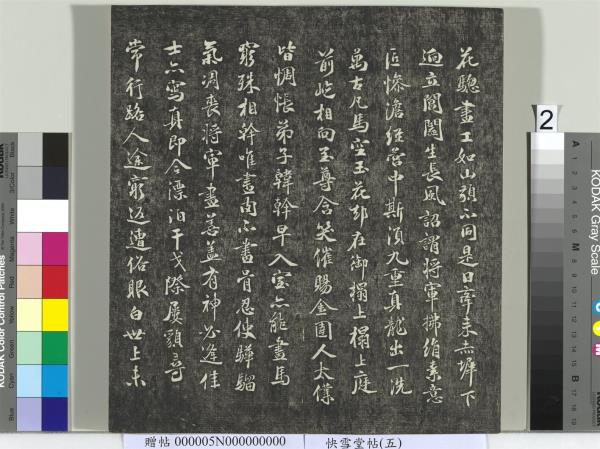 花驄畫工如山貌不同是日牽来赤墀下
迥立閶闔生長風詔謂將軍拂絹素意
匠慘澹經營中斯須九重真龍出一洗
萬古凡馬空玉花却在御榻上榻上庭
前屹相向至尊含笑催賜金圉人太僕
皆惆悵弟子韓幹早入室亦能畫馬
窮殊相幹唯畫肉不畫骨忍使驊騮
氣凋喪將軍畫善蓋有神必逢佳
士亦寫真即今漂泊干戈際屢貌尋
常行路人途窮返遭俗眼白世上未
2
KODAK Gray Scale
KODAK Color Control Patches
Black
White
Magenta
Red
Yellow
Green
Cyan
Blue
贈帖 000005N000000000
快雪堂帖(五)